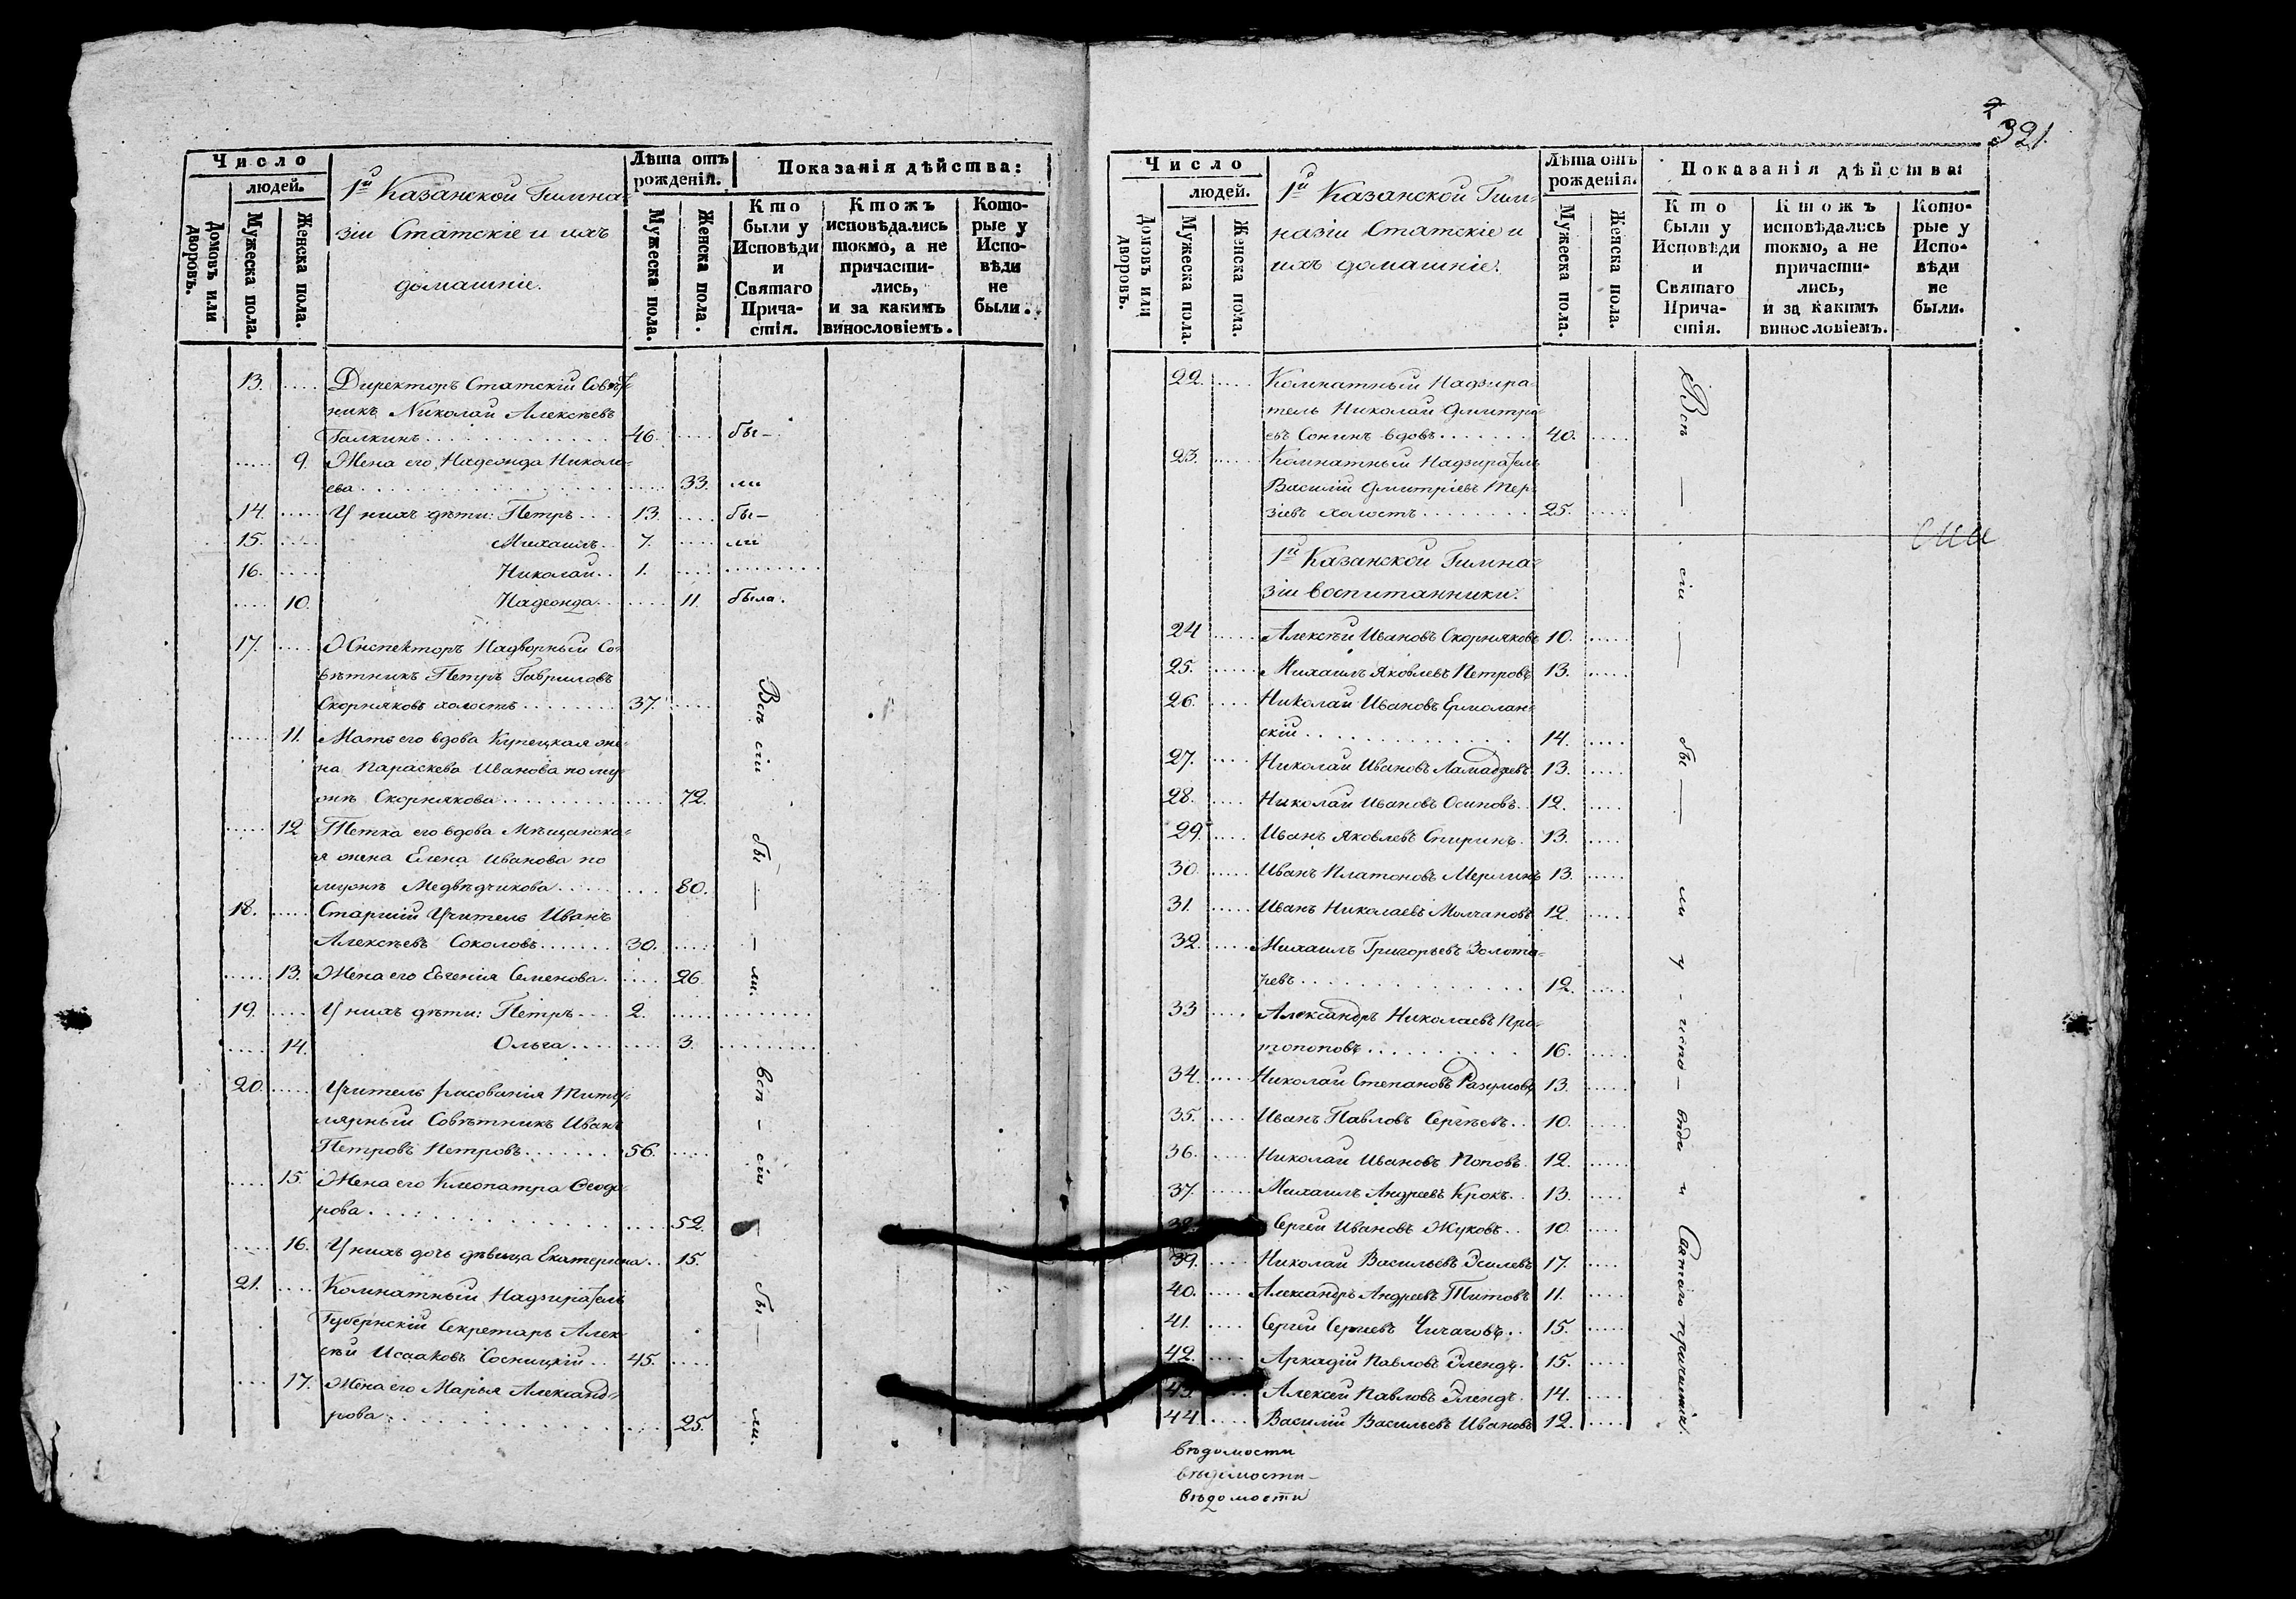 Число
людей.
Домовъ или дворовъ.
Мужеска пола.
Женска пола.
1й Казанской Гимна-
зіи Статскіе и ихъ
домашніе.
Лѣта отъ
рожденія.
Мужеска пола.
Женска пола.
Показанія дѣйства:
Кто были у Исповѣди и Святаго Прича-стія.
Ктожъ исповѣдались токмо, а не причасти-лись, и за какимъ винословіемъ.
Кото-рые у Испо-вѣди не были.
13. Директоръ Статскій Совѣт-
никъ Николай Алексѣевъ
Галкинъ 46. бы-
9. Жена его Надежда Никола-
ева 33. ли
14. У нихъ дѣти: Петръ 13. бы-
15. Михаилъ 7. ли
16. Николай 1.
10. Надежда 11. была.
17. Инспекторъ Надворный Со-
вѣтникъ Петръ Гавриловъ
Скорняковъ холостъ 37.
11. Мать его вдова Купецкая же-
на Параскева Иванова по му-
жѣ Скорнякова 72.
12 Тетка его вдова Мѣщанска-
я жена Елена Иванова по
мужѣ Медвѣдчикова 80.
18. Старшій Учитель Иванъ
Алексѣевъ Соколовъ 30.
13. Жена его Евгенія Семенова 26.
19. У нихъ дѣти: Петръ 2.
14. Ольга 3.
20. Учитель рисованія Титу-
лярный Совѣтникъ Иванъ
Петровъ Петровъ 56.
15. Жена его Клеопатра Ѳеодо-
рова 52.
16. У нихъ дочь дѣвица Екатерина 15.
21. Комнатный Надзиратель
Губернскій Секретарь Алек-
сѣй Исааковъ Сосницкій 45.
17. Жена его Марья Александ-
рова 25.
Всѣ сіи бы — — ли.
всѣ — сіи — бы — ли.
321.
Число
людей.
Домовъ или дворовъ.
Мужеска пола.
Женска пола.
1й Казанской Гим-
назіи Статскіе и
ихъ домашніе.
Лѣта отъ
рожденія.
Мужеска пола.
Женска пола.
Показанія дѣйства:
Кто были у Исповѣди и Святаго Прича-стія.
Ктожъ исповѣдались токмо, а не причасти-лись, и за какимъ винословіемъ.
Кото-рые у Испо-вѣди не были.
22. Комнатный Надзира-
тель Николай Дмитри-
евъ Сонинъ вдовъ 40.
23. Комнатный Надзиратель
Василій Дмитріевъ Тер-
зіевъ холостъ 25.
1й Казанской Гимна-
зіи воспитанники.
24 Алексѣй Ивановъ Скорняковъ 10.
25. Михаилъ Яковлевъ Петровъ 13.
26. Николай Ивановъ Ермолин-
скій 14.
27. Николай Ивановъ 13.
28. Николай Ивановъ Осиповъ 12.
29. Иванъ Яковлевъ Спиринъ 13.
30. Иванъ Платоновъ Мерлинъ 13.
31. Иванъ Николаевъ Молчановъ 12.
32. Михаилъ Григорьевъ Золота-
ревъ 12.
33 Александръ Николаевъ Про-
топоповъ 16.
34. Николай Степановъ Разумовъ 13.
35. Иванъ Павловъ Сергѣевъ 10.
36. Николай Ивановъ Поповъ 12.
37. Михаилъ Андреевъ Крокъ 13.
38. Сергѣй Ивановъ Жуковъ 10.
39. Николай Васильевъ 17.
40. Александръ Андреевъ Титовъ 11.
41. Сергей Сергиевъ Чичаговъ 15.
42. Аркадій Павловъ Элендъ 15.
43. Алексей Павловъ Элендъ 14.
44. Василій Васильевъ Ивановъ 12.
Всѣ — сіи — бы — ли у - испо - вѣди и Святаго причастія.
вѣдомости
вѣдомости
вѣдомости